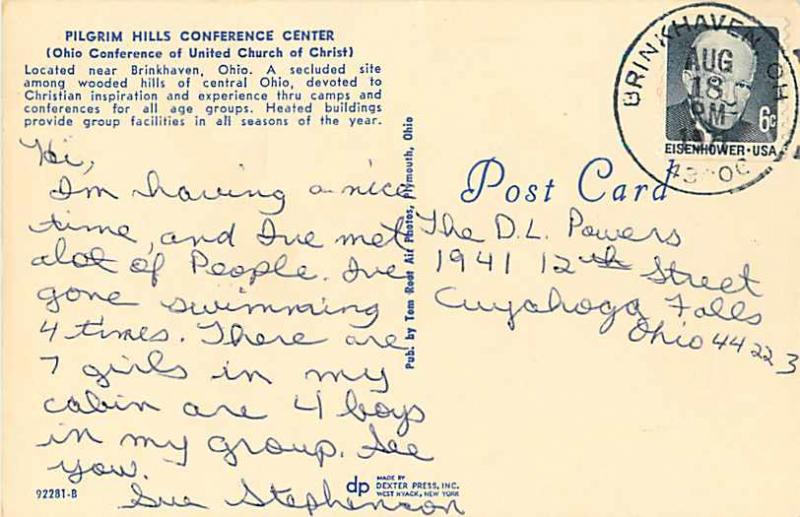 PILGRIM HILLS CONFERENCE CENTER
(Ohio Conference of United Church of Christ)
Located near Brinkhaven, Ohio. A secluded site
among wooded hills of central Ohio, devoted to
Christian inspiration and experience thru camps and
conferences for all age groups. Heated buildings
provide group facilities in all seasons of the year.
Hi,
Im having a nice
time, and Ive met
alot of People. Ive
gone swimming
4 times. There are
7 girls in my
cabin are 4 boys
in my group. See
you.
Sue Stephenson
92281-B
dp
MADE BY
DEXTER PRESS, INC.
WEST NYACK, NEW YORK
Pub. by Tom Root Air Photos, Plymouth, Ohio
Post Card
BRINKHAVEN, OH
AUG
18
PM
430
6c
EISENHOWER·USA
The D.L. Powers
1941 12th Street
Cuyahoga Falls
Ohio 44223